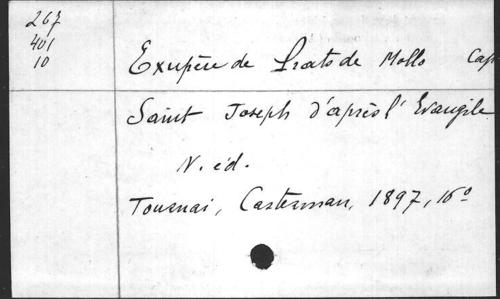 267
401
10
Exupère de Prats de Mollo Cap
Saint Joseph d'après l'Evangile
N. éd.
Tournai, Casterman, 1897, 16º